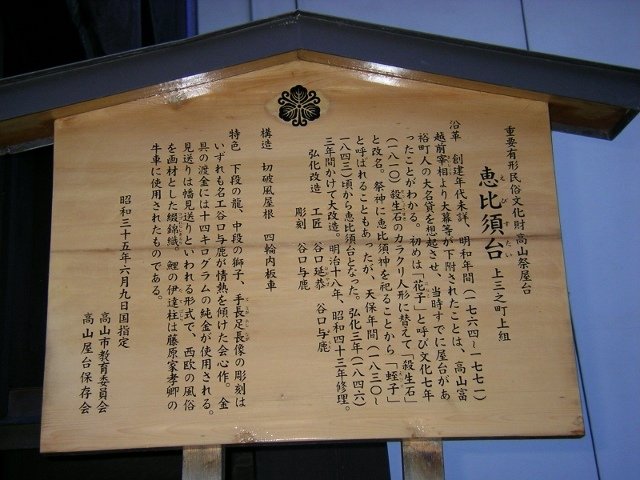 重要有形民俗文化財高山祭屋台
恵比須台 上三之町上組
えびすたい
沿革 創建年代未詳、明和年間(一七六四〜一七七一)
越前宰相より大幕等が下附されたことは、高山富
裕町人の大名貸を想起させ、当時すでに屋台があ
ったことがわかる。初めは「花子」と呼び文化七年
(一八一〇)殺生石のカラクリ人形に替えて「殺生石」
と改名。祭神に恵比須神を祀ることから「蛭子」
と呼ばれることもあったが、天保年間(一八三〇〜
一八四三)頃から恵比須台となった。弘化三年(一八四六)
三年間かけて大改造。明治十八年、昭和四十三年修理。
弘化改造 工匠 谷口延恭 谷口与鹿
彫刻 谷口与鹿
構造 切破風屋根 四輪内板車
特色 下段の龍、中段の獅子、手長足長像の彫刻は
いずれも名工谷口与鹿が情熱を傾けた会心作。金
具の渡金には十四キログラムの純金が使用される。
見送りは幡見送りといわれる形式で、西欧の風俗
を画材とした綴錦織。鯉の伊達柱は藤原家孝卿の
牛車に使用されたものである。
昭和三十五年六月九日国指定
高山市教育委員会
高山屋台保存会